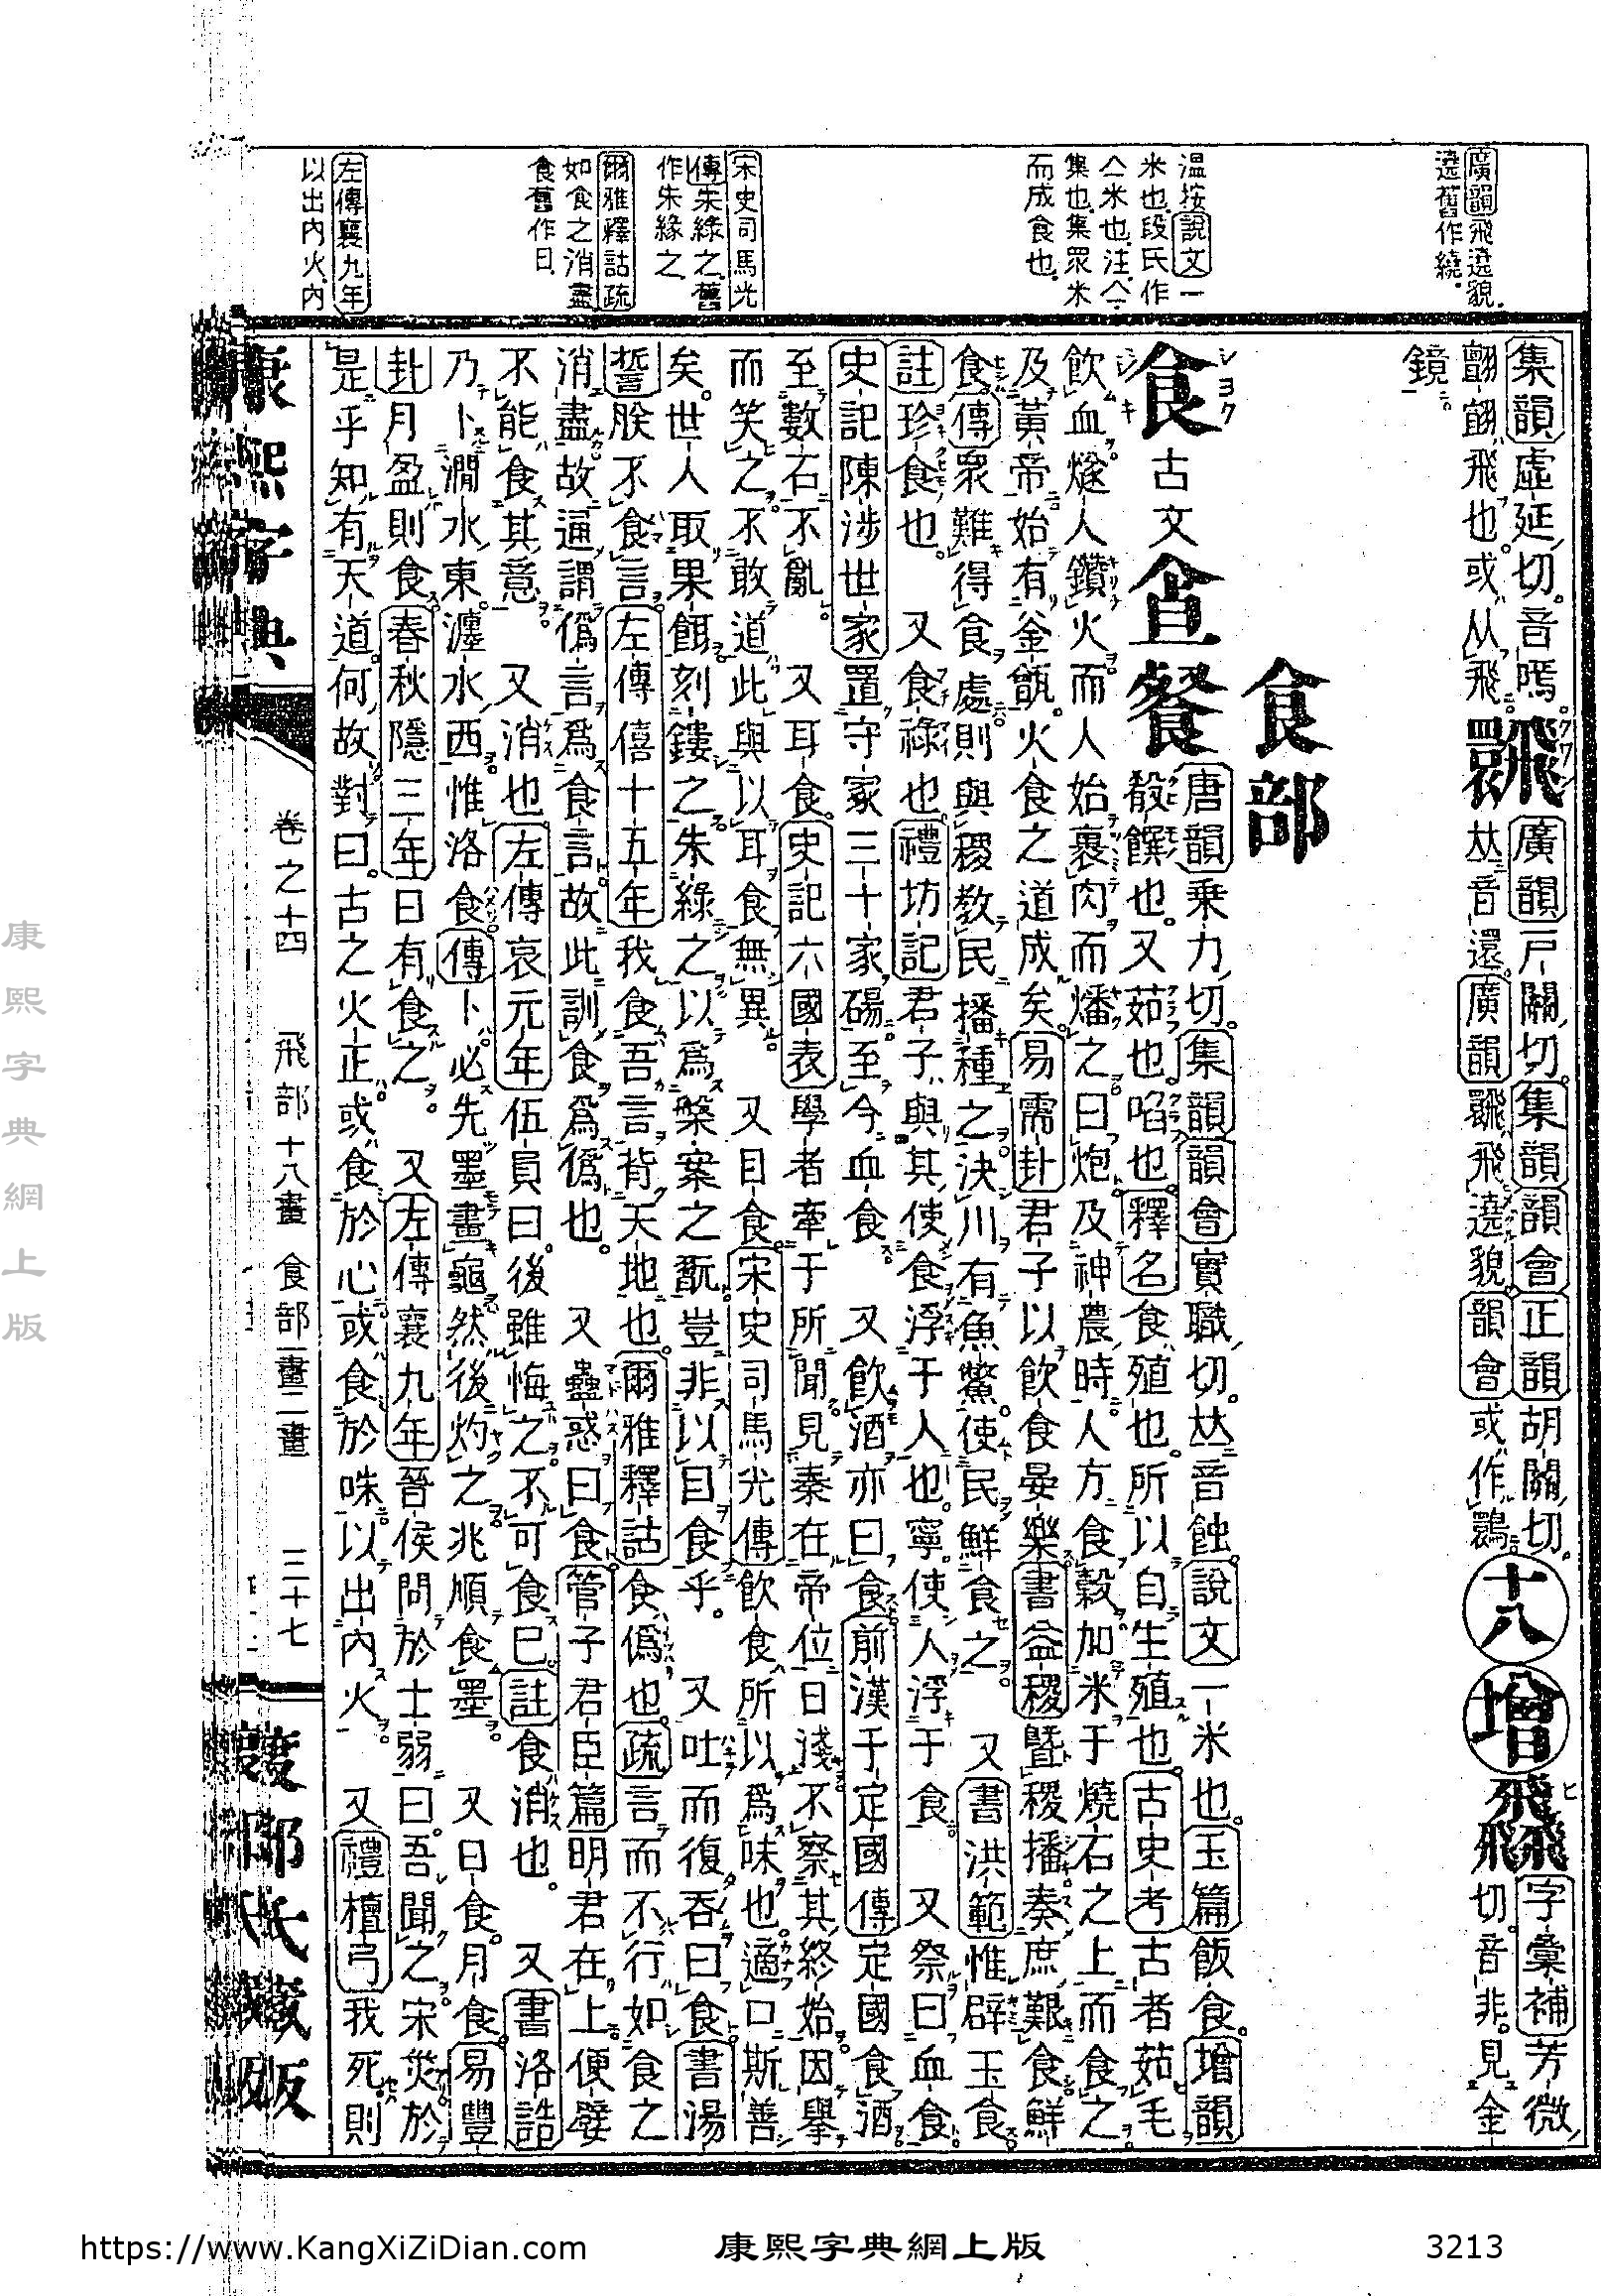 廣韻飛遶貌
遶舊作繞
温按說文一
米也段氏作
亼米也注亼
集也集眾米
而成食也
宋史司馬光
傳朱綠之舊
作朱緣之
爾雅釋詁疏
如食之消盡
食舊作日
左傳襄九年
以出内火内
集韻虛延切音嘕
翾翩飛也或从飛
廣韻戸關切集韻韻會正韻胡關切
𠀤音還廣韻飛遶貌韻會或作
十八
增
字彙補芳微
切音非見金
鏡
食部
食古文
唐韻乗力切集韻韻會實職切𠀤音蝕說文一米也玉篇飯食增韻
殽饌也又茹也啗也釋名食殖也所以自生殖也古史考古者茹毛
飮血燧人鑽火而人始裹肉而燔之曰炮及神農時人方食穀加米于燒石之上而食之
及黃帝始有釜甑火食之道成矣易需卦君子以飮食宴樂書益稷曁稷播奏庶艱食鮮
食傳衆難得食處則與稷敎民播種之決川有魚鱉使民鮮食之 又書洪範惟辟玉食
註珍食也 又食祿也禮坊記君子與其使食浮于人也寧使人浮于食 又祭曰血食
史記陳涉世家置守冢三十家碭至今血食 又飮酒亦曰食前漢于定國傳定國食酒
至數石不亂 又耳食史記六國表學者牽于所聞見秦在帝位日淺不察其終始因擧
而笑之不敢道此與以耳食無異 又目食宋史司馬光傳飮食所以爲味也適口斯善
矣世人取果餌刻鏤之朱綠之以爲槃案之翫豈非以目食乎 又吐而復吞曰食書湯
誓朕不食言左傳僖十五年我食吾言背天地也爾雅釋詁食僞也疏言而不行如食之
消盡故通謂僞言爲食言故此訓食爲僞也 又蠱惑曰食管子君臣篇明君在上便嬖
不能食其意 又消也左傳哀元年伍員曰後雖悔之不可食已註食消也 又書洛誥
乃卜澗水東瀍水西惟洛食傳卜必先墨畫龜然後灼之兆順食墨 又日食月食易豐
卦月盈則食春秋隱三年日有食之 又左傳襄九年晉侯問於士弱曰吾聞之宋災於
是乎知有天道何故對曰古之火正或食於心或食於咮以出内火 又禮檀弓我死則
康熙字典
卷之十四
飛部 十八畫 食部 一畫 二畫
三十七
康熙字典網上版
https://www.KangXiZiDian.com
康熙字典網上版
3213